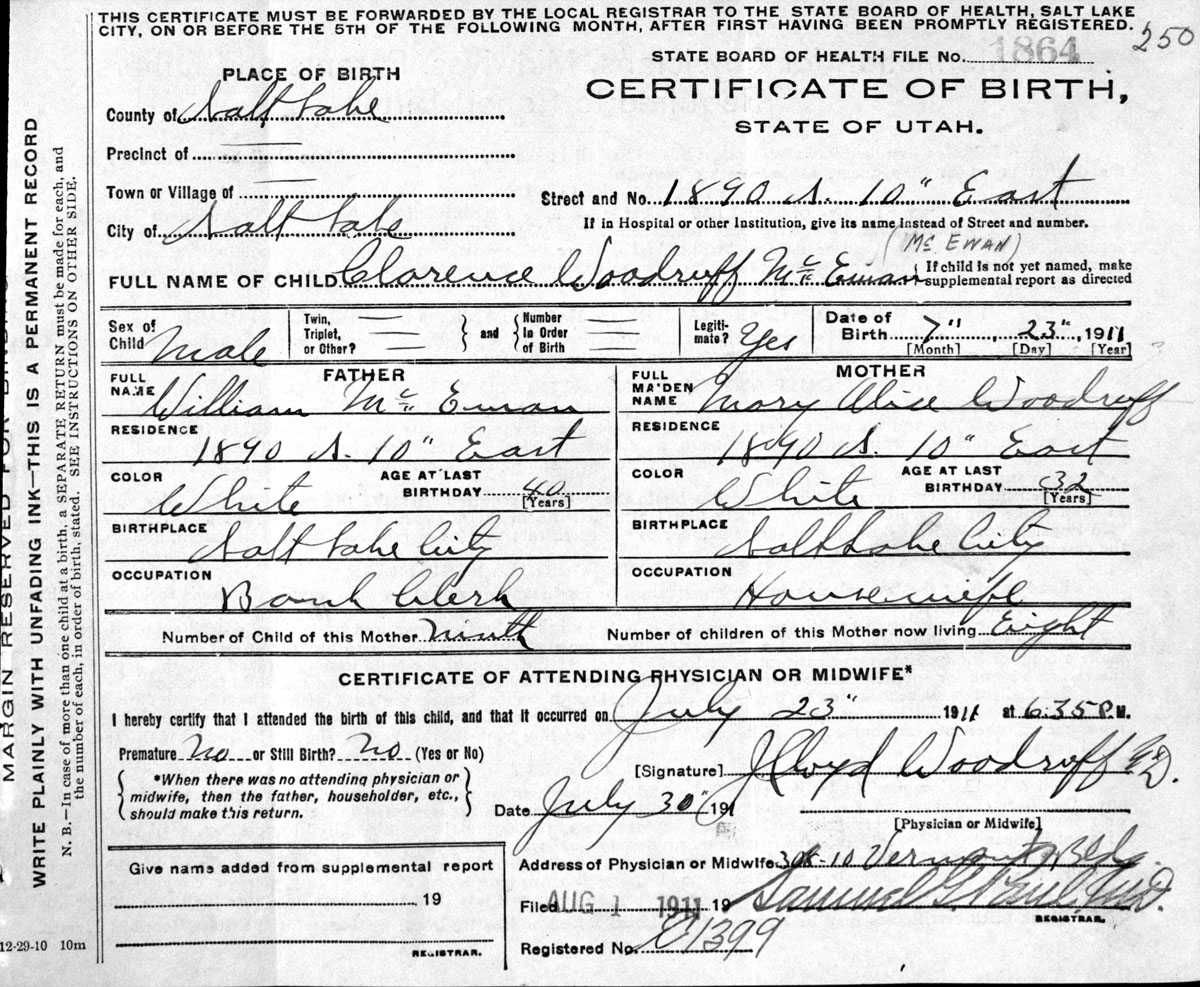 THIS CERTIFICATE MUST BE FORWARDED BY THE LOCAL REGISTRAR TO THE STATE BOARD OF HEALTH, SALT LAKE
CITY, ON OR BEFORE THE 5TH OF THE FOLLOWING MONTH, AFTER FIRST HAVING BEEN PROMPTLY REGISTERED.
250
STATE BOARD OF HEALTH FILE No. 1864
PLACE OF BIRTH
CERTIFICATE OF BIRTH,
STATE OF UTAH.
County of Salt Lake
Precinct of —
Town or Village of —
Street and No. 1890 S. 10" East
City of Salt Lake
If in Hospital or other Institution, give its name instead of Street and number.
(Mc Ewan)
FULL NAME OF CHILD Clarence Woodruff Mc Ewan { If child is not yet named, make
supplemental report as directed
Sex of Child Male
Twin, Triplet, or Other? — } and { Number in Order of Birth —
Legitimate? Yes
Date of Birth 7", 23", 1911
[Month] [Day] [Year]
FATHER
FULL NAME William Mc Ewan
RESIDENCE 1890 S. 10" East
COLOR White AGE AT LAST BIRTHDAY 40 [Years]
BIRTHPLACE Salt Lake City
OCCUPATION Bank Clerk
MOTHER
FULL MAIDEN NAME Mary Alice Woodruff
RESIDENCE 1890 S. 10" East
COLOR White AGE AT LAST BIRTHDAY 32 [Years]
BIRTHPLACE Salt Lake City
OCCUPATION Housewife
Number of Child of this Mother ninth Number of children of this Mother now living Eight
CERTIFICATE OF ATTENDING PHYSICIAN OR MIDWIFE*
I hereby certify that I attended the birth of this child, and that it occurred on July 23" 1911 at 6:35 P.M.
Premature No or Still Birth? No (Yes or No)
*When there was no attending physician or
midwife, then the father, householder, etc.,
should make this return.
[Signature] J Lloyd Woodruff M.D.
Date July 30" 191
[Physician or Midwife]
Address of Physician or Midwife Bldg.
Filed AUG 1 1911 19 Samuel G Paul M.D.
REGISTRAR.
Registered No. 1399
Give name added from supplemental report
19
REGISTRAR.
12-29-10 10m
MARGIN RESERVED FOR BINDING
WRITE PLAINLY WITH UNFADING INK—THIS IS A PERMANENT RECORD
N. B.—In case of more than one child at a birth, a SEPARATE RETURN must be made for each, and
the number of each, in order of birth, stated. SEE INSTRUCTIONS ON OTHER SIDE.